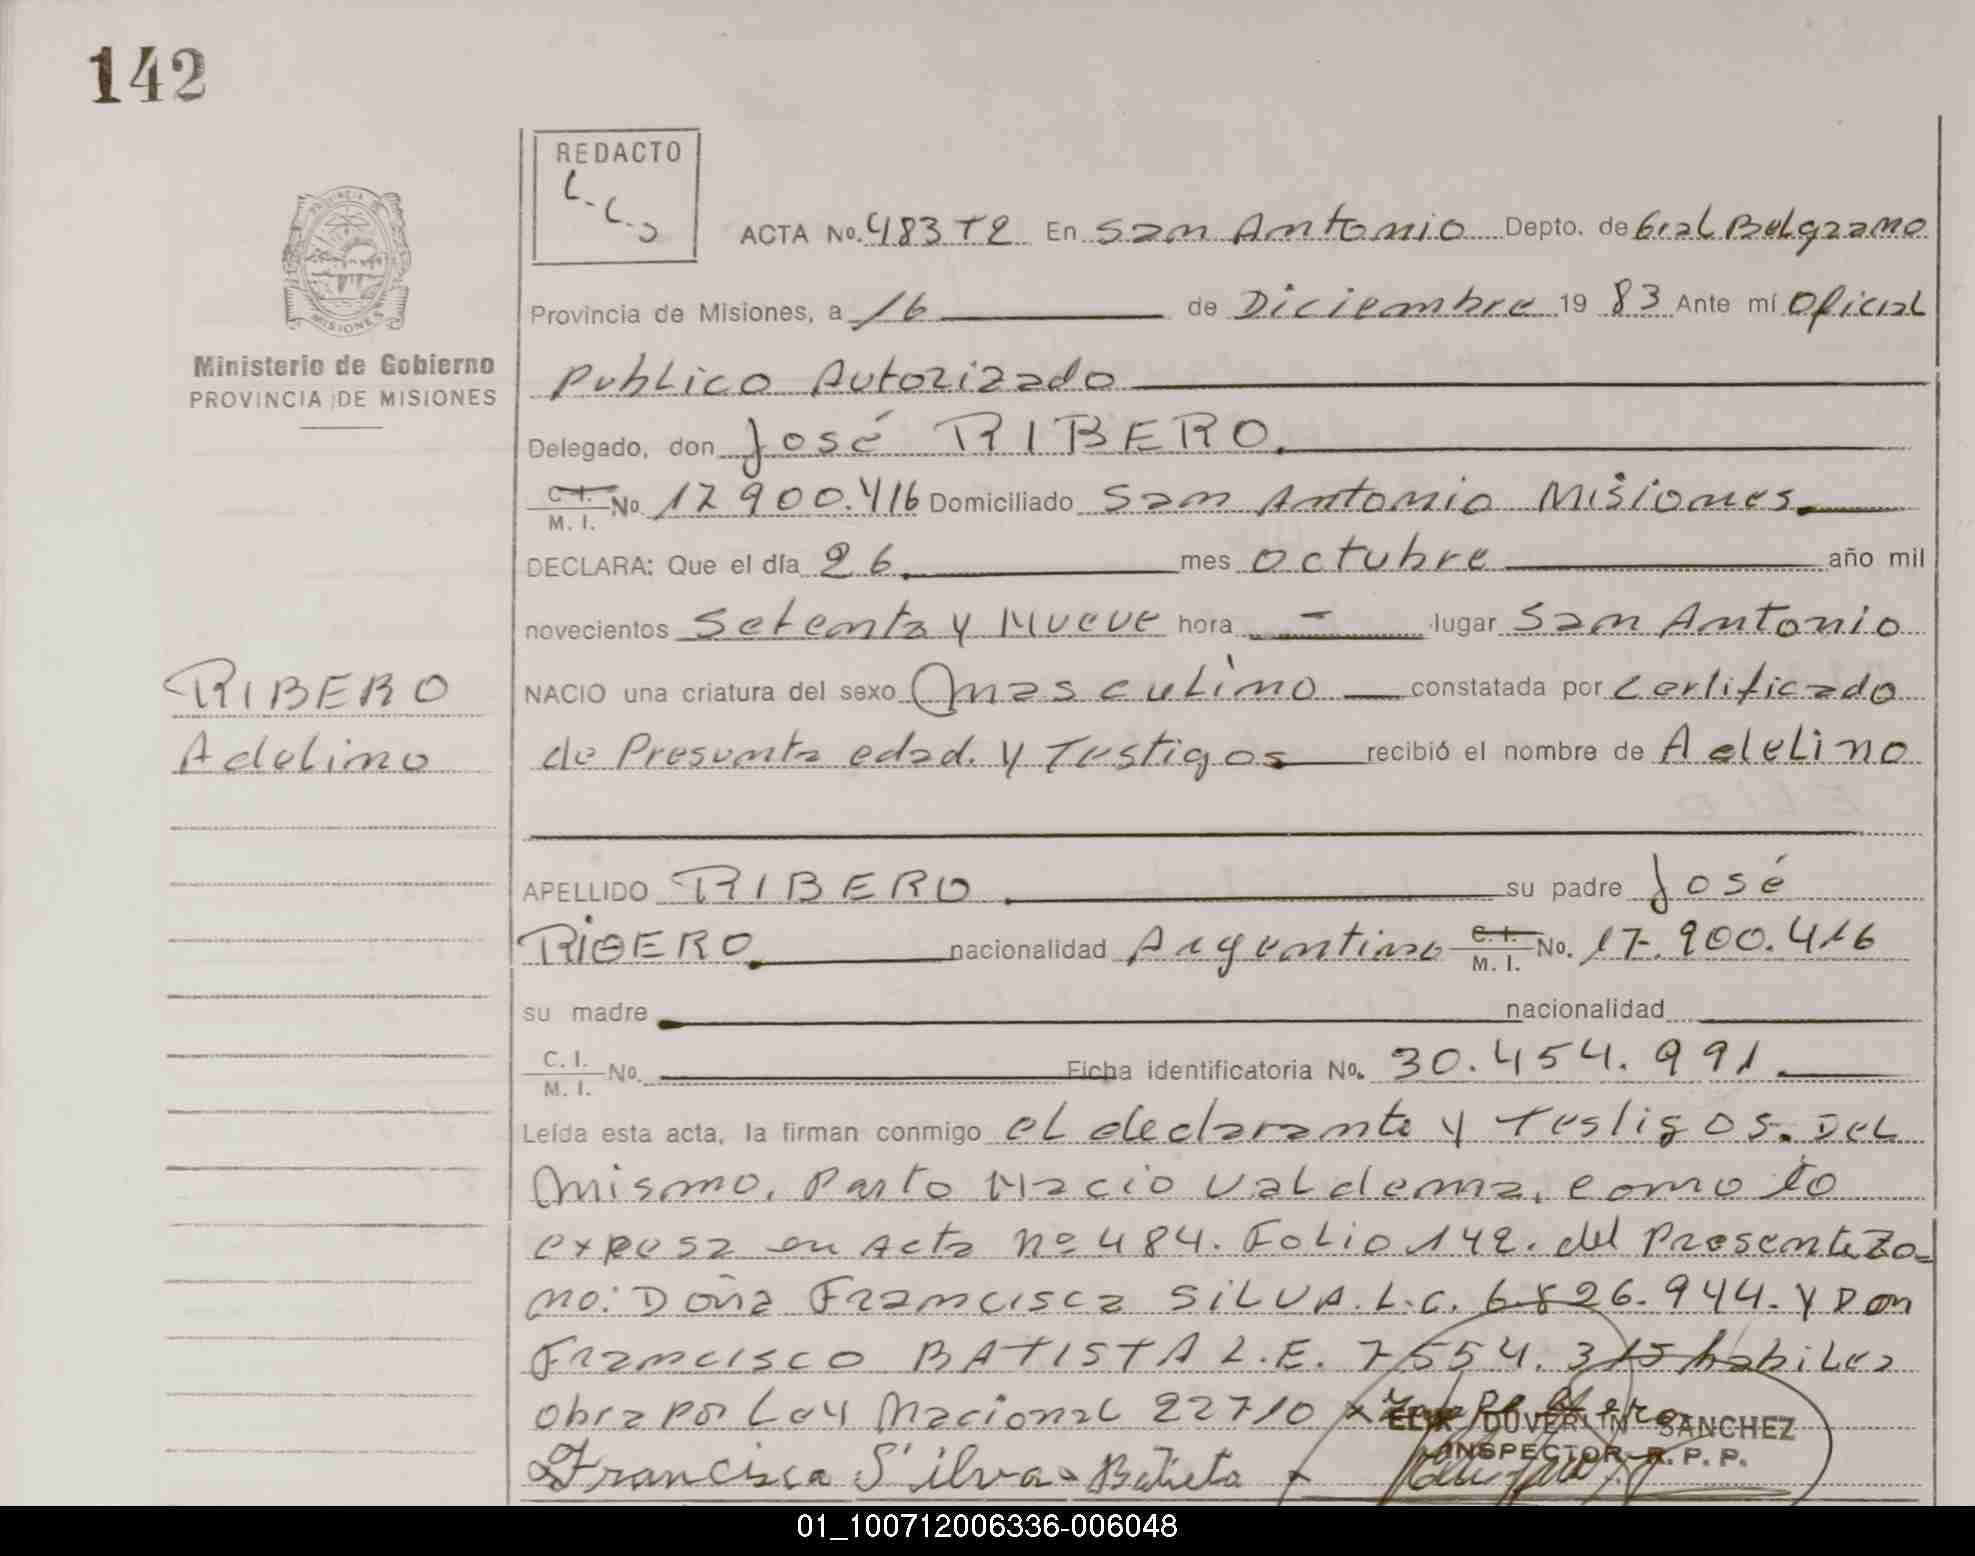 142
REDACTO
L.L.J
ACTA No. 483 T2 En San Antonio Depto. de Gral Belgrano
PROVINCIA DE
MISIONES
Provincia de Misiones, a 16 de Diciembre 19 83 Ante mí Oficial
Ministerio de Gobierno
PROVINCIA DE MISIONES
Publico Autorizado
Delegado, don José RIBERO.
C. I. M. I. No. 17.900.416 Domiciliado San Antonio Misiones.
DECLARA: Que el día 26. mes octubre año mil
novecientos setenta y Nueve hora - lugar San Antonio
RIBERO
Adelino
NACIO una criatura del sexo Masculino constatada por certificado
de Presunta edad. y Testigos recibió el nombre de Adelino
APELLIDO RIBERO. su padre José
RIBERO. nacionalidad Argentino C. I. M. I. No. 17.900.416
su madre nacionalidad
C. I. M. I. No. Ficha identificatoria No. 30.454.991.
Leída esta acta, la firman conmigo el declarante y Testigos. DEL
mismo. Parto Nacio Valdema, como lo
expresa en Acta nº 484. Folio 142. del Presente to-
mo: Doña Francisca SILVA. L.C. 6826.944. y Don
Francisco BATISTA L.E. 7554.315 habiles
obra por Ley Nacional 22710 x
ELIX DUVERLIN SANCHEZ
INSPECTOR R. P. P.
Francisca Silva - Batista x
01_100712006336-006048